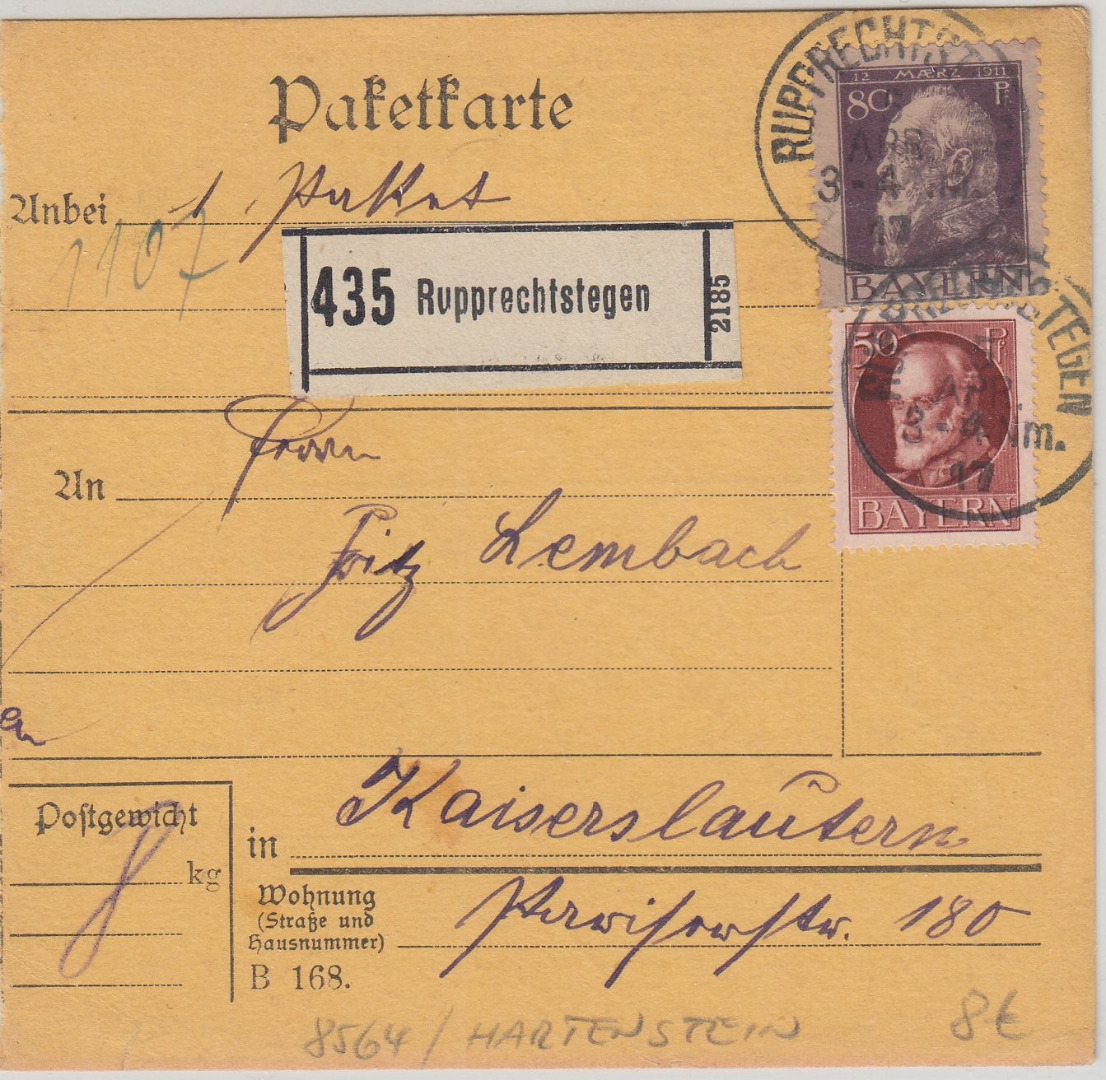 Paketkarte
Anbei 1 Paket
1107
435 Rupprechtstegen 2185
12 MÆRZ 1911
80 Pf
BAYERN
RUPPRECHTST
APR
3-4 
17
50 Pf
BAYERN
STEGEN
APR.
3-4 Nm.
17
An Herrn
Fritz Lembach
Postgewicht
8 kg
in Kaiserslautern
Wohnung
(Straße und
Hausnummer)
Pariserstr. 180
B 168.
8564 / HARTENSTEIN 8€